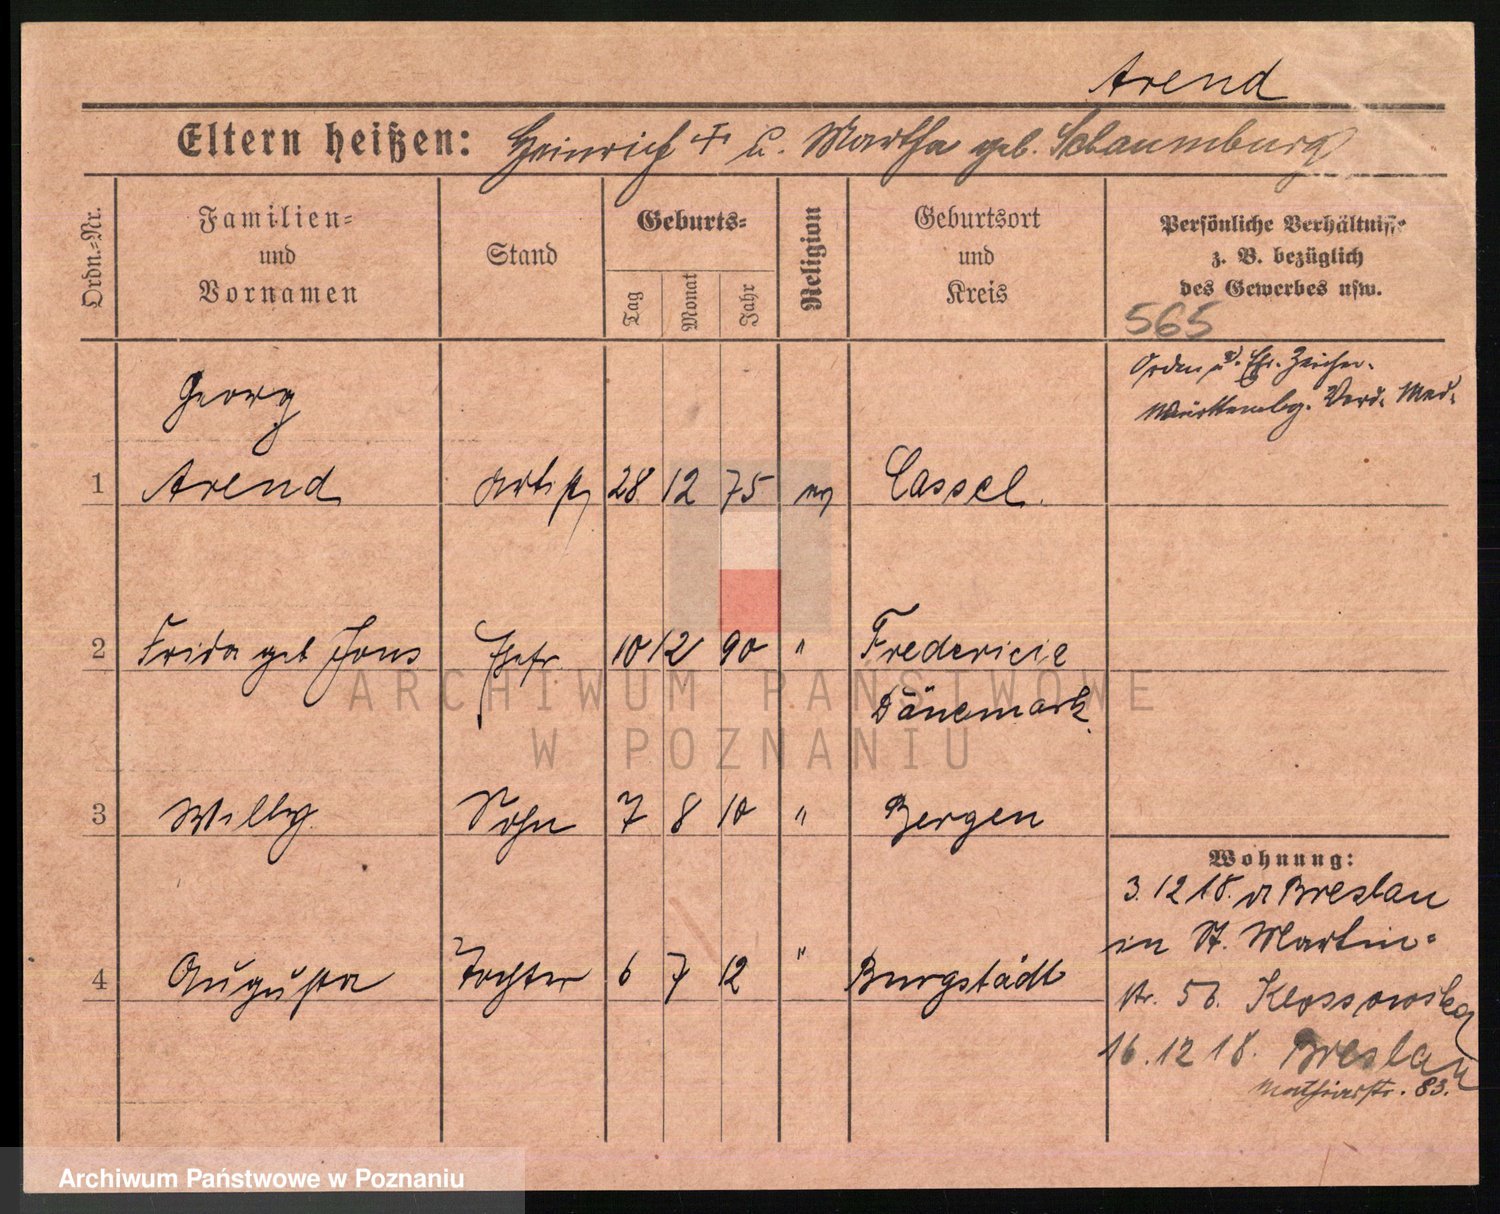 Arend
Eltern heißen: Heinrich † u. Martha geb. Schaumburg
Ordn.=Nr.
Familien=
und
Vornamen
Stand
Geburts=
Tag
Monat
Jahr
Religion
Geburtsort
und
Kreis
Persönliche Verhältnisse
z. B. bezüglich
des Gewerbes usw.
565
Orden u. Eh. Zeichen.
Württembg. Verd. Med.
Georg
1 Arend Artist 28 12 75 ev Cassel.
2 Frida geb Jons Ehefr. 10 12 90 " Fredericie
Dänemark.
3 Willy. Sohn 7 8 10 " Bergen
4 Augusta Tochter 6 7 12 " Burgstädt
Wohnung:
3.12 18. v Breslau
in St. Martin-
str. 56. Klossowska
16.12 18. Breslau
Mathiasstr. 83.
ARCHIWUM PAŃSTWOWE
W POZNANIU
Archiwum Państwowe w Poznaniu